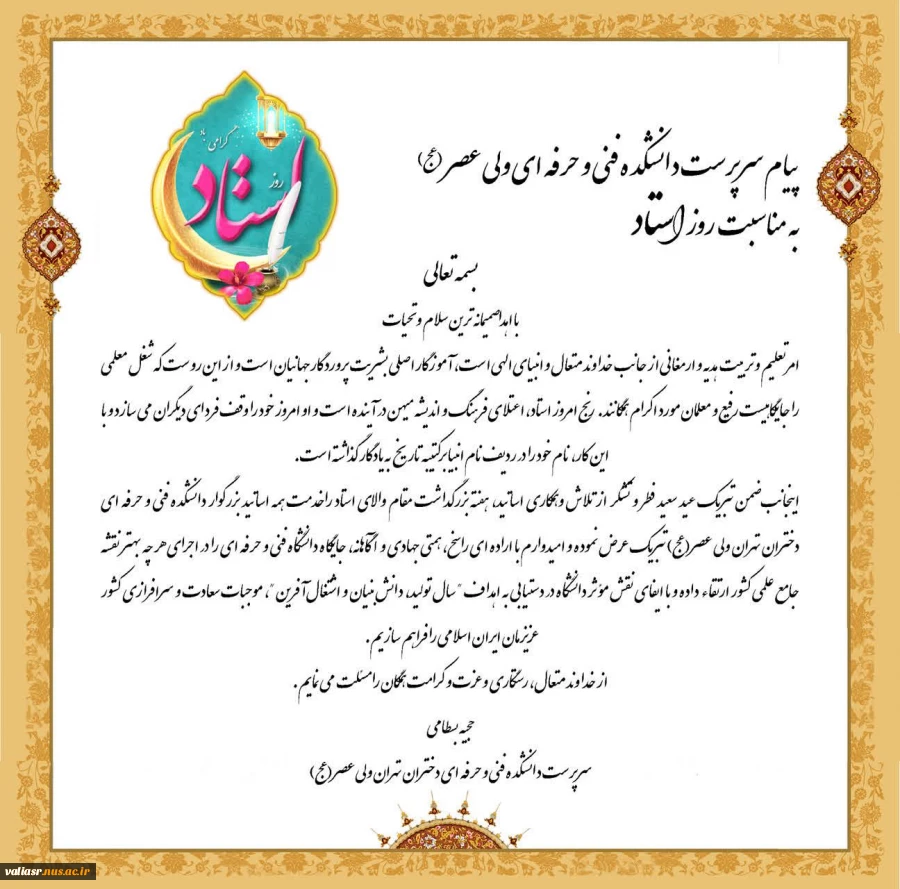 پیام سرپرست دانشکده فنی و حرفه ای ولی عصر (عج)
به مناسبت روز استاد
روز
استاد
گرامی باد
بسمه تعالی
با اهدا صمیمانه ترین سلام و تحیات
امر تعلیم و تربیت هدیه و ارمغانی از جانب خداوند متعال و انبیای الهی است، آموزگار اصلی بشریت پروردگار جهانیان است و از این روست که شغل معلمی
را جایگاهیست رفیع و معلمان مورد اکرام همگانند. رنج امروز استاد، اعتلای فرهنگ و اندیشه میهن در آینده است و او امروز خود را وقف فردای دیگران می سازد و با
این کار، نام خود را در ردیف نام انبیا بر کتیبه تاریخ به یادگار گذاشته است.
اینجانب ضمن تبریک عید سعید فطر و تشکر از تلاش و همکاری اساتید، هفته بزرگداشت مقام والای استاد را خدمت همه اساتید بزرگوار دانشکده فنی و حرفه ای
دختران تهران ولی عصر (عج) تبریک عرض نموده و امیدوارم با اراده ای راسخ، همتی جهادی و آگاهانه، جایگاه دانشگاه فنی و حرفه ای را در اجرای هر چه بهتر نقشه
جامع علمی کشور ارتقاء داده و با ایفای نقش مؤثر دانشگاه در دستیابی به اهداف "سال تولید، دانش بنیان و اشتغال آفرین"، موجبات سعادت و سرافرازی کشور
عزیزمان ایران اسلامی را فراهم سازیم.
از خداوند متعال، رستگاری و عزت و کرامت همگان را مسئلت می نمایم.
حجیه بسطامی
سرپرست دانشکده فنی و حرفه ای دختران تهران ولی عصر (عج)
valiasr.nus.ac.ir